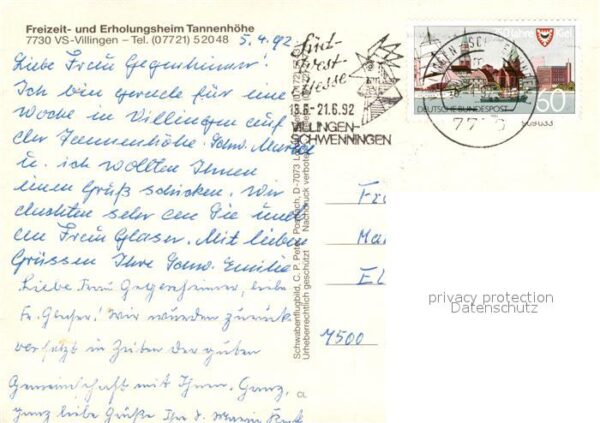 Freizeit- und Erholungsheim Tannenhöhe
7730 VS-Villingen – Tel. (07721) 52048
5.4.92
Liebe Frau Gegenheimer!
Ich bin gerade für eine
Woche in Villingen auf
der Tannenhöhe. Schw. 
u. ich wollten Ihnen
einen Gruß schicken. Wir
dachten sehr an Sie und
an Frau Glaser. Mit lieben
Grüssen Ihre Schw. Emilie
Liebe Frau Gegenheimer, liebe
Fr. Glaser! Wir wurden zurück-
versetzt in Zeiten der guten
Gemeinschaft mit Ihnen. Ganz,
ganz liebe Grüße Ihre S. Maria
Südwest-
Messe
13.6-21.6.92
VILLINGEN-
SCHWENNINGEN
750 Jahre Kiel
DEUTSCHE BUNDESPOST
60
909033
Schwabenflugbild, C. P. Peter, Postfach, D-7073
Urheberrechtlich geschützt Nachdruck verboten
Fr
Ma
El
7500
privacy protection
Datenschutz